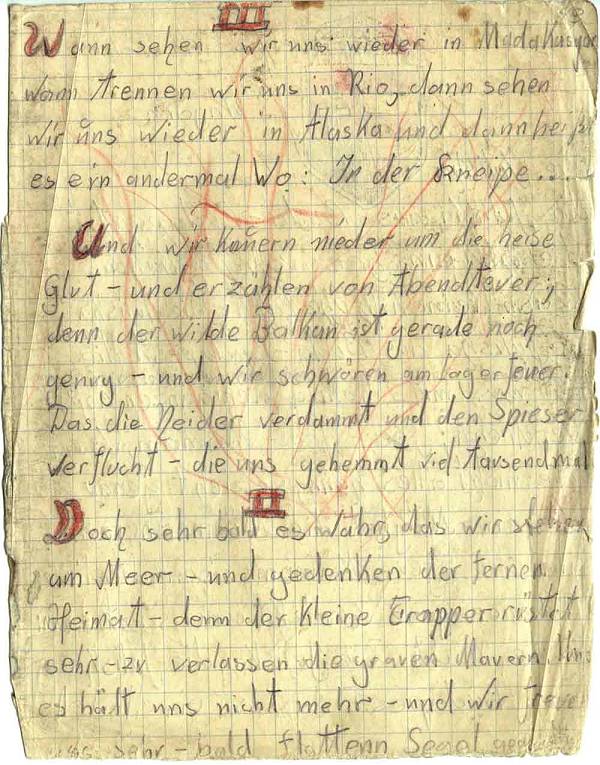 III
Wann sehen wir uns wieder in Madakasgar
wann trennen wir uns in Rio, dann sehen
wir uns wieder in Alaska und dann heißt
es ein andermal Wo: In der Kneipe...
Und wir kauern nieder um die heise
Glut - und erzählen von Abendteuer;
denn der wilde Balkan ist gerade noch
genug - und wir schwören am lagerfeuer.
Das die Neider verdammt und den Spieser
verflucht - die uns gehemmt viel tausendmal
II
Doch sehr bald es wahr, das wir stehen
am Meer - und gedenken der fernen
Heimat - denn der kleine Trapper rüstet
sehr - zu verlassen die grauen Mauern
es hält uns nicht mehr - und wir
sehr - bald flattenn Segel